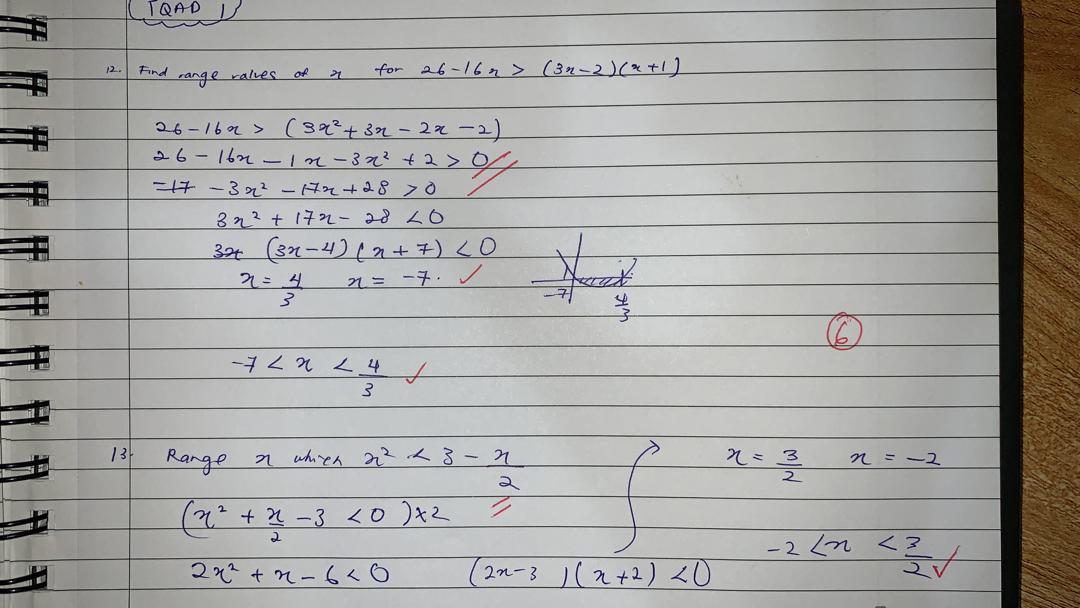 TQAD 1
12. Find range values of x for 26-16x > (3x-2)(x+1)
26-16x > (3x²+3x-2x-2)
26-16x-1x-3x²+2>0
=17 -3x²-17x+28>0
3x²+17x-28<0
3x (3x-4)(x+7)<0
x=4/3 x=-7.
-7 4/3
6
-7<x<4/3
13. Range x which x²<3-x/2
x=3/2 x=-2
(x²+x/2-3<0)×2
-2<x<3/2
2x²+x-6<0 (2x-3)(x+2)<0